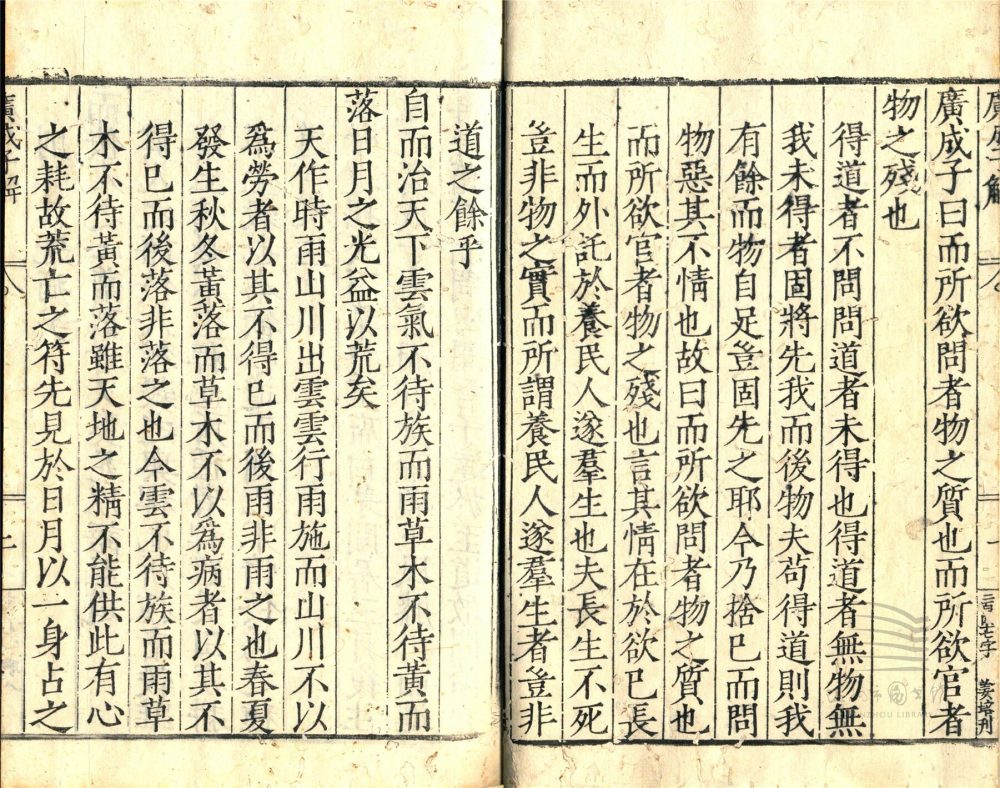 廣成子曰而所欲問者物之質也而所欲官者
物之殘也
得道者不問問道者未得也得道者無物無
我未得者固將先我而後物夫苟得道則我
有餘而物自足豈固先之耶今乃捨己而問
物惡其不情也故曰而所欲問者物之質也
而所欲官者物之殘也言其情在於欲己長
生而外託於養民人遂羣生也夫長生不死
豈非物之實而所謂養民人遂羣生者豈非
道之餘乎
自而治天下雲氣不待族而雨草木不待黃而
落日月之光益以荒矣
天作時雨山川出雲雲行雨施而山川不以
爲勞者以其不得已而後雨非雨之也春夏
發生秋冬黃落而草木不以爲病者以其不
得已而後落非落之也今雲不待族而雨草
木不待黃而落雖天地之精不能供此有心
之耗故荒亡之符先見於日月以一身占之
廣成子解